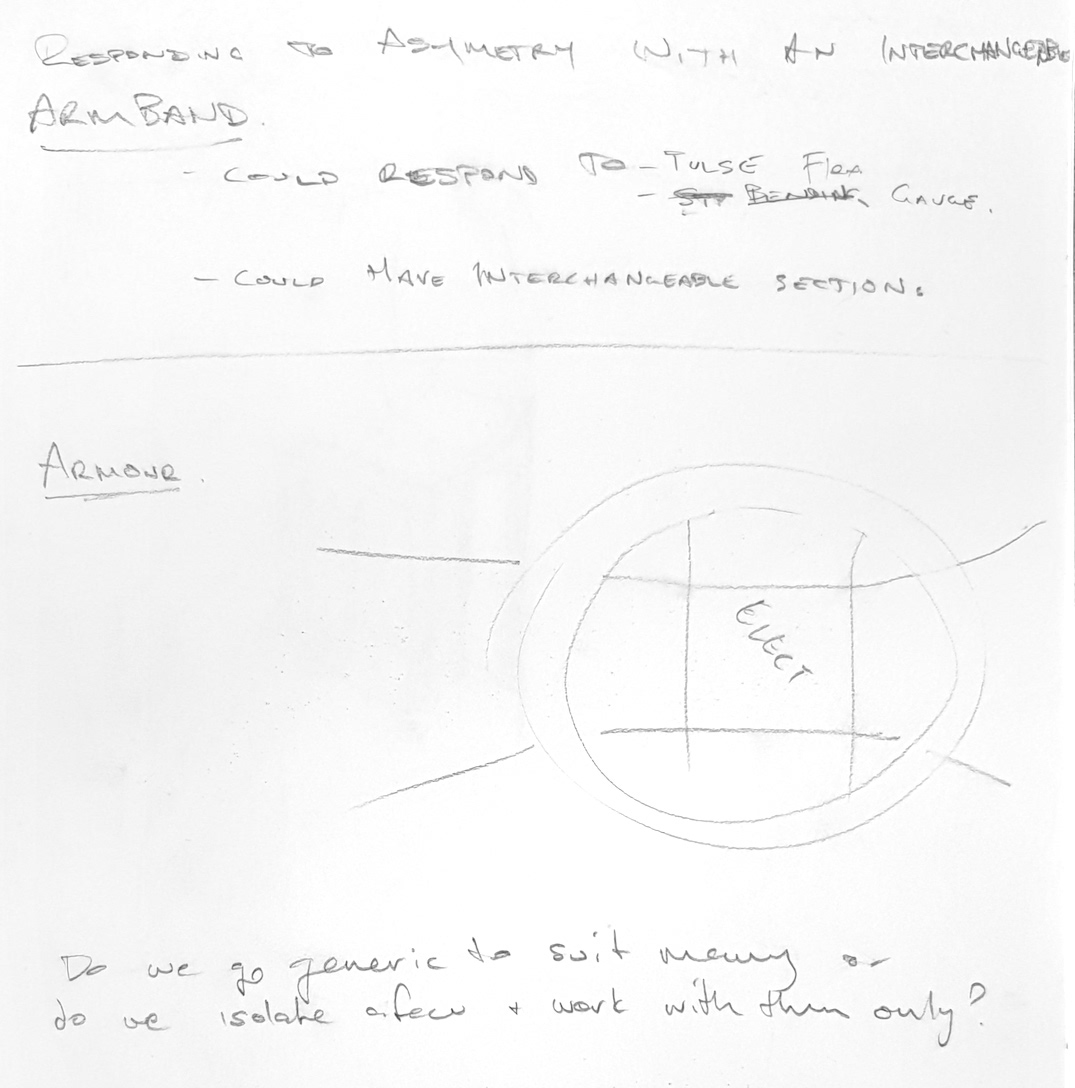 RESPONDING TO ASYMETRY WITH AN INTERCHANGEABLE
ARMBAND.
- COULD RESPOND TO - PULSE
- BENDING GAUGE.
- COULD HAVE INTERCHANGEABLE SECTION.
ARMOUR.
ELECT
Do we go generic to suit many or
do we isolate a few + work with them only?